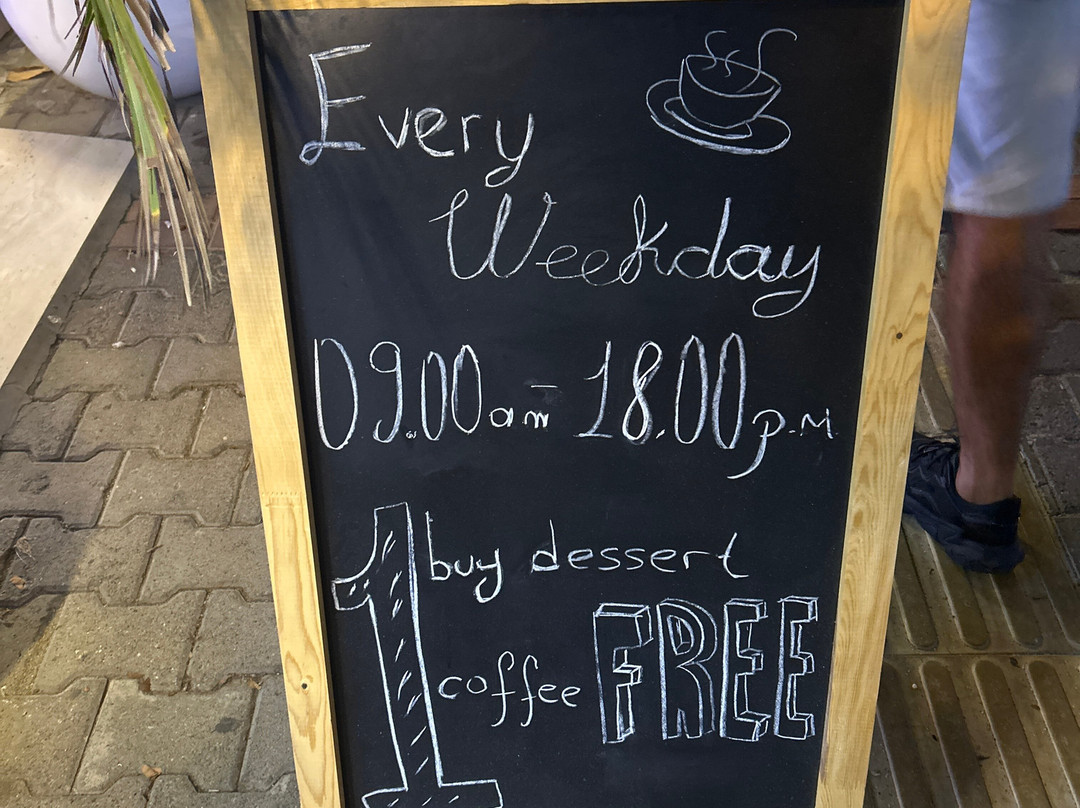 Every
Weekday
09.00 am - 18.00 p.M
1 buy dessert
coffee FREE